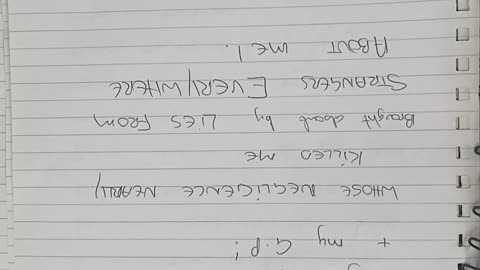 + my G.P!
WHOSE NEGLIGENCE NEARLY
KILLED ME
Braght about by LIES FROM
STRANGERS EVERYWHERE
ABOUT me!